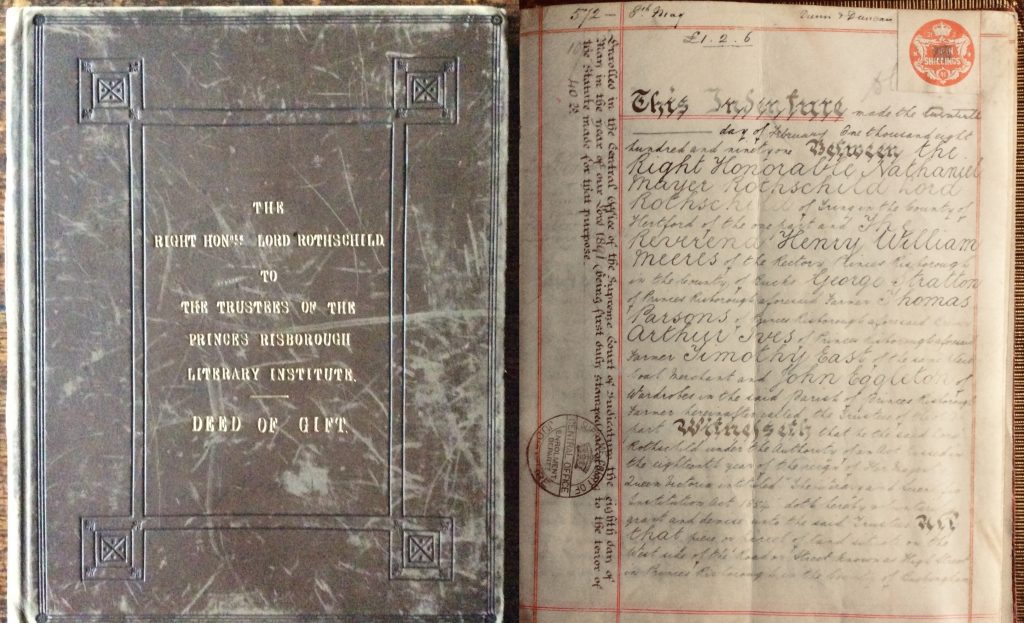 THE
RIGHT HONBLE LORD ROTHSCHILD
TO
THE TRUSTEES OF THE
PRINCES RISBOROUGH
LITERARY INSTITUTE.
DEED OF GIFT.
572 — 8th May
£1.2.6
SHILLINGS
This Indenture made the twentieth
day of February One thousand eight
hundred and ninety one Between the
Right Honorable Nathaniel
Mayer Rothschild Lord
Rothschild of Tring in the County of
Hertford of the one part and The
Reverend Henry William
Meeres of the Rectory Princes Risborough
in the County of Bucks George Stratton
of Princes Risborough aforesaid Farmer Thomas
Parsons of Princes Risborough aforesaid
Arthur Ives of Princes Risborough aforesaid
Farmer Timothy East of the same place
Coal Merchant and John Eggleton of
Wardrobes in the said Parish of Princes Risborough
Farmer hereinafter called the Trustees of the
part Witnesseth that he the said Lord
Rothschild under the Authority of an Act passed in
the eighteenth year of the reign of Her
Queen Victoria intituled
Institutions Act 1854 doth hereby
grant and devise unto the said Trustees All
that piece or parcel of land situate on the
West side of the Road or Street known as High Street
in Princes Risborough in the County of Buckingham
Enrolled in the Central Office of the Supreme Court of Judicature the eighth day of
May in the year of our Lord 1891 (being first duly stamped) according to the tenor of
the Statute made for that purpose.
CENTRAL OFFICE
ENROLMENT